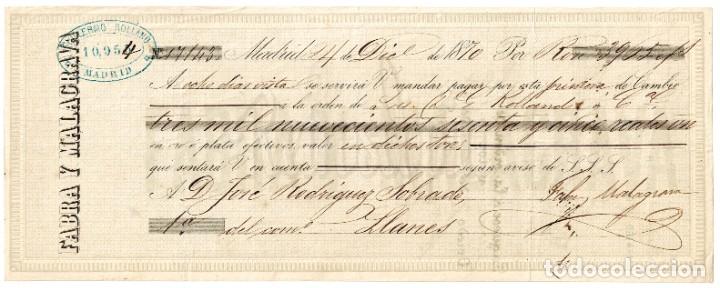 GUILLERMO ROLLAND
10,954
MADRID
FABRA Y MALAGRAVA
No. 17143. Madrid 24 de Dice. de 1870 Por Rvn.
A ocho dias vista se servirá V. mandar pagar por esta primera de Cambio
a la orden de Rolland
tres mil nuevecientos sesenta y cinco reales vn
en oro ó plata efectivos, valor en dichos
que sentará V en cuenta según aviso de S.S.S.
A D. José Rodriguez Sobrado, Fabra Malagrava
del com. Llanes
todocoleccion.net